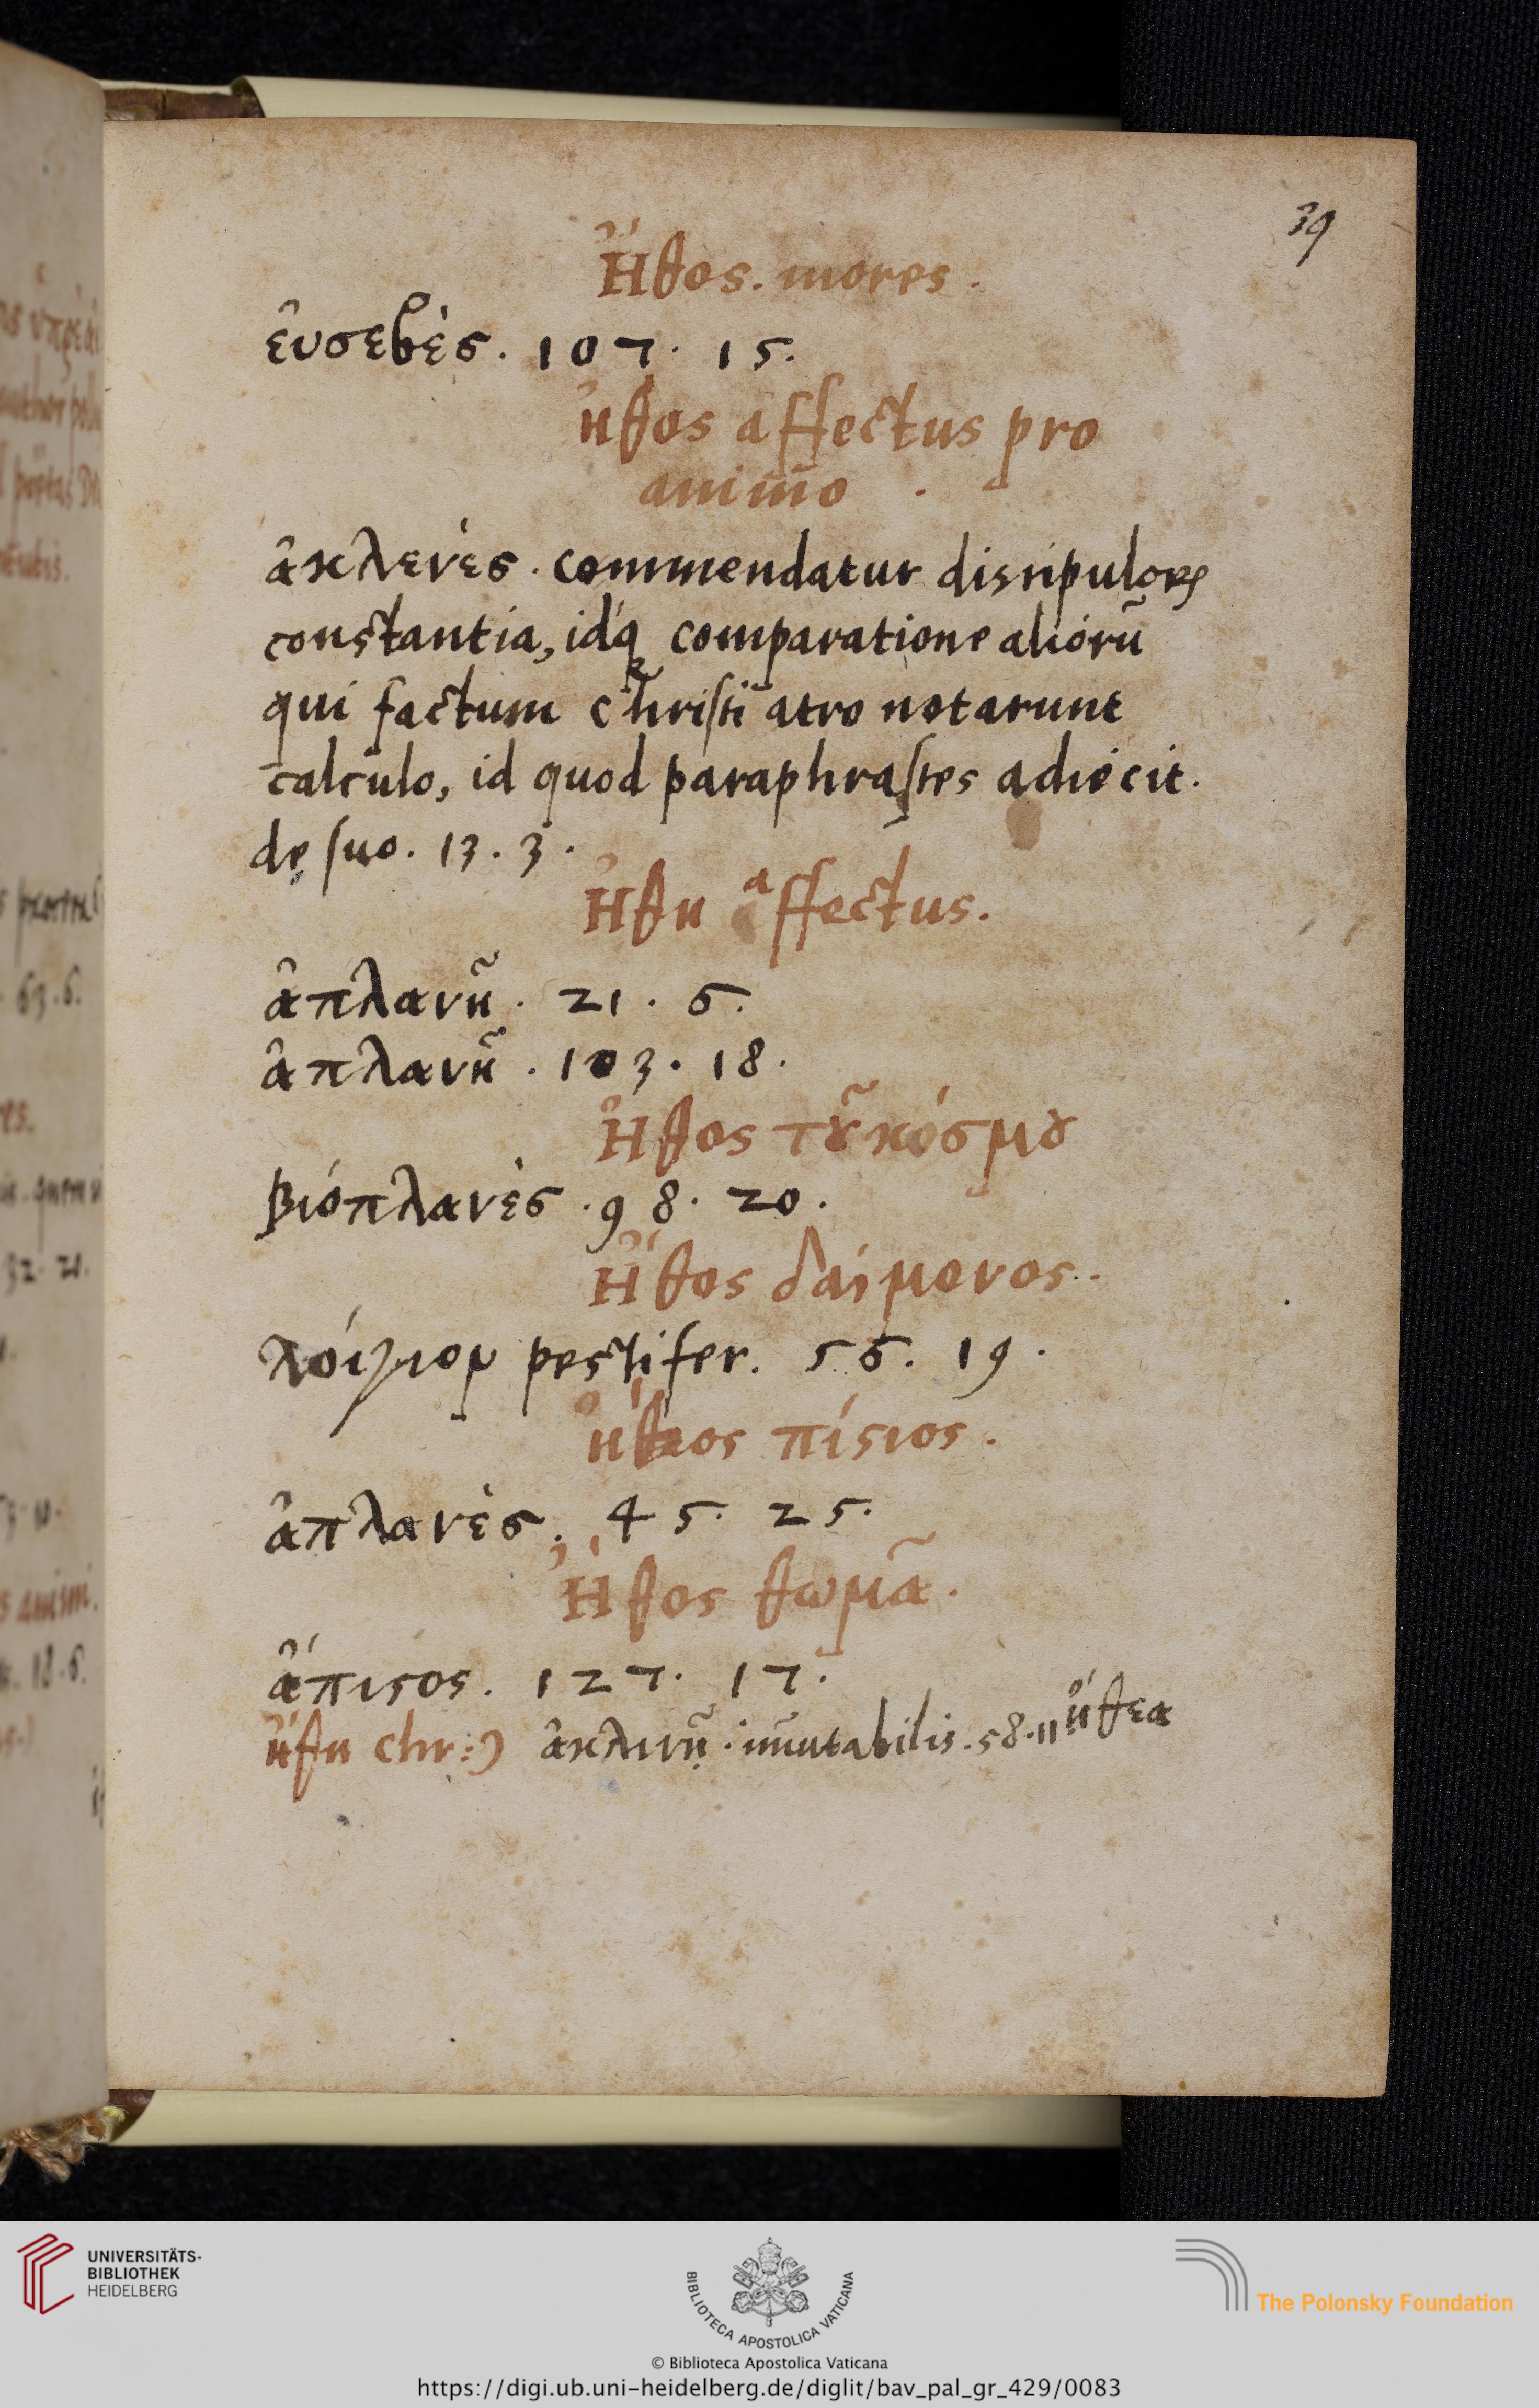 39
Ἦθος. mores.
ἐυσεβὲς. 107. 15.
ἦθος affectus pro
animo.
ἀκλενὲς. commendatur discipulorꝝ
constantia, idq́ꝫ comparatione aliorũ
qui factum Christi atro notarunt
calculo, id quod paraphrastes adiecit.
de suo. 13. 3.
Ἤθη affectus.
ἀπλανῆ. 21. 6.
ἀπλανῆ. 103. 18.
Ἦθος τȣ͂ κόσμȣ
βιόπλανὲς. 98. 20.
Ἦθος δαίμονος.
λόιγιον pestifer. 56. 19.
ἦθος πίϛιος.
ἀπλανὲς. 45. 25.
Ἦθος θωμᾶ.
ἄπιϛος. 127. 17.
ἤθη chr: ἀκλινῆ. im̃utabilis. 58. 11 ἤθεα
UNIVERSITÄTS-
BIBLIOTHEK
HEIDELBERG
BIBLIOTECA APOSTOLICA VATICANA
The Polonsky Foundation
© Biblioteca Apostolica Vaticana
https://digi.ub.uni-heidelberg.de/diglit/bav_pal_gr_429/0083